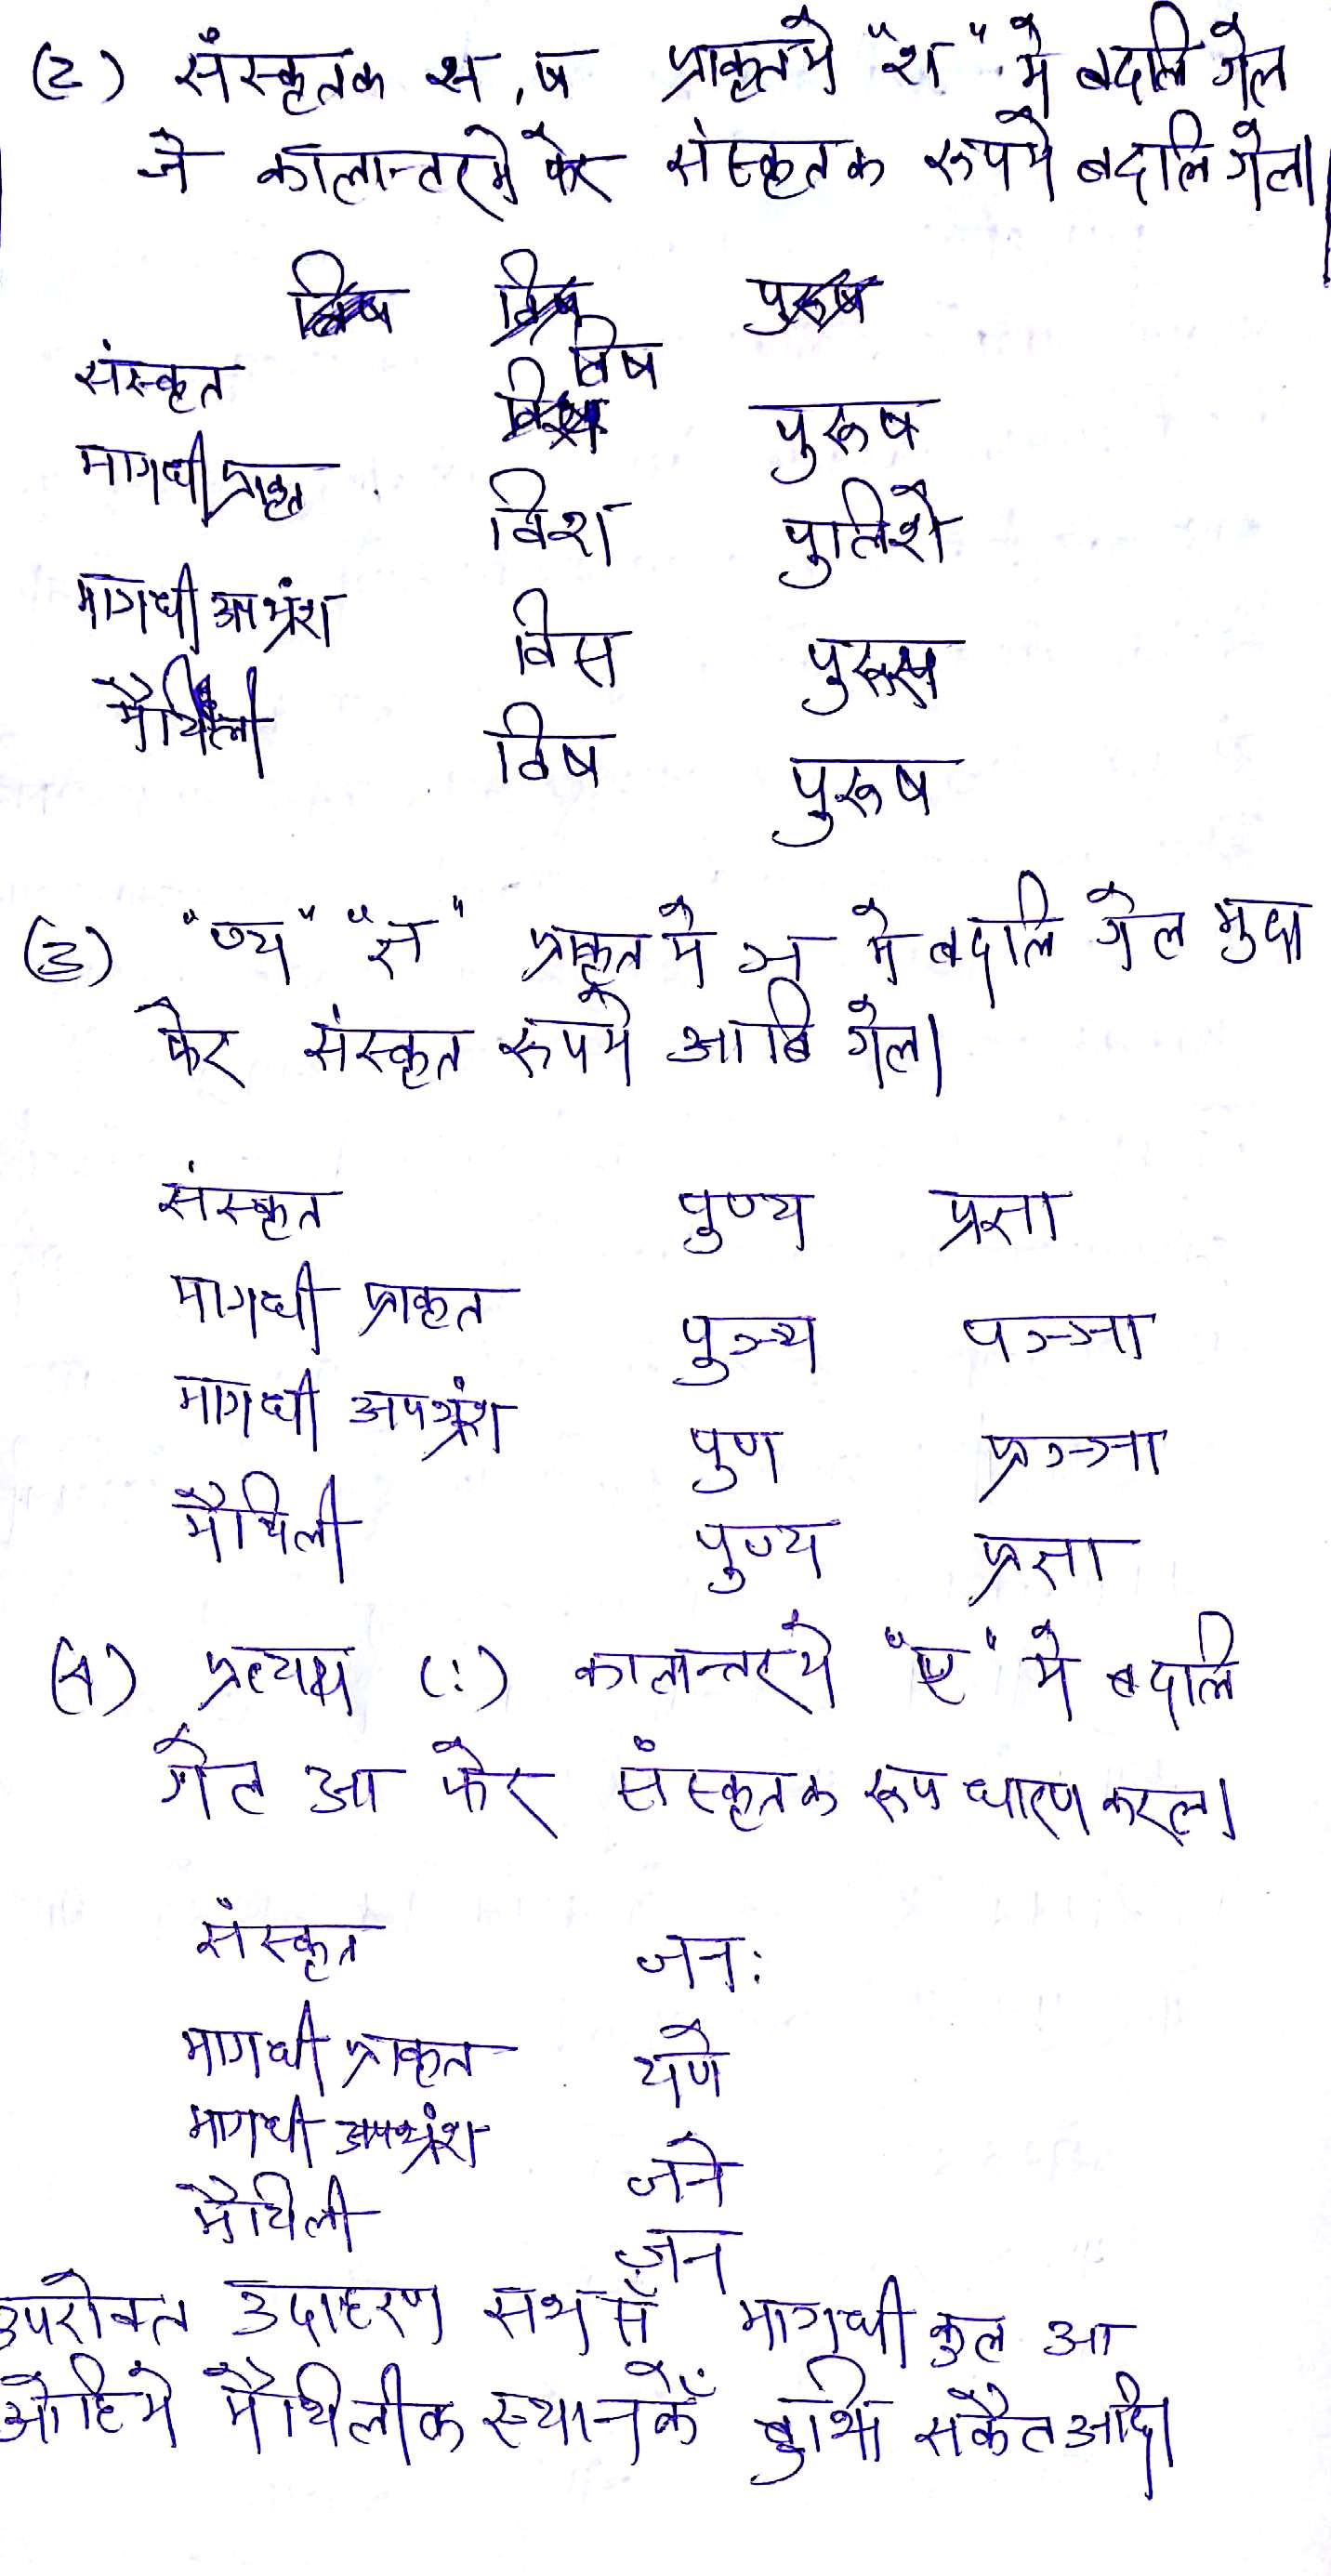 (2) संस्कृतक स, ष प्राकृतमे "श" मे बदलि गेल
जे कालान्तरमे फेर संस्कृतक रूपमे बदलि गेल।
संस्कृत विष पुरूष
मागधी प्राकृत विश पुलिशे
मागधी अपभ्रंश विस पुरूस
मैथिली विष पुरूष
(3) "ण्य" "ज्ञ" प्राकृत मे ञ मे बदलि गेल मुदा
फेर संस्कृत रूपमे आबि गेल।
संस्कृत पुण्य प्रज्ञा
मागधी प्राकृत पुञ्य पञ्ञा
मागधी अपभ्रंश पुण प्रञ्ञा
मैथिली पुण्य प्रज्ञा
(4) प्रत्यय (:) कालान्तरमे "ए" मे बदलि
गेल आ फेर संस्कृतक रूप धारण कएल।
संस्कृत जन:
मागधी प्राकृत यणे
मागधी अपभ्रंश जने
मैथिली जन
उपरोक्त उदाहरण सभसँ मागधी कुल आ
ओहिमे मैथिलीक स्थानकेँ बुझि सकैत अछि।